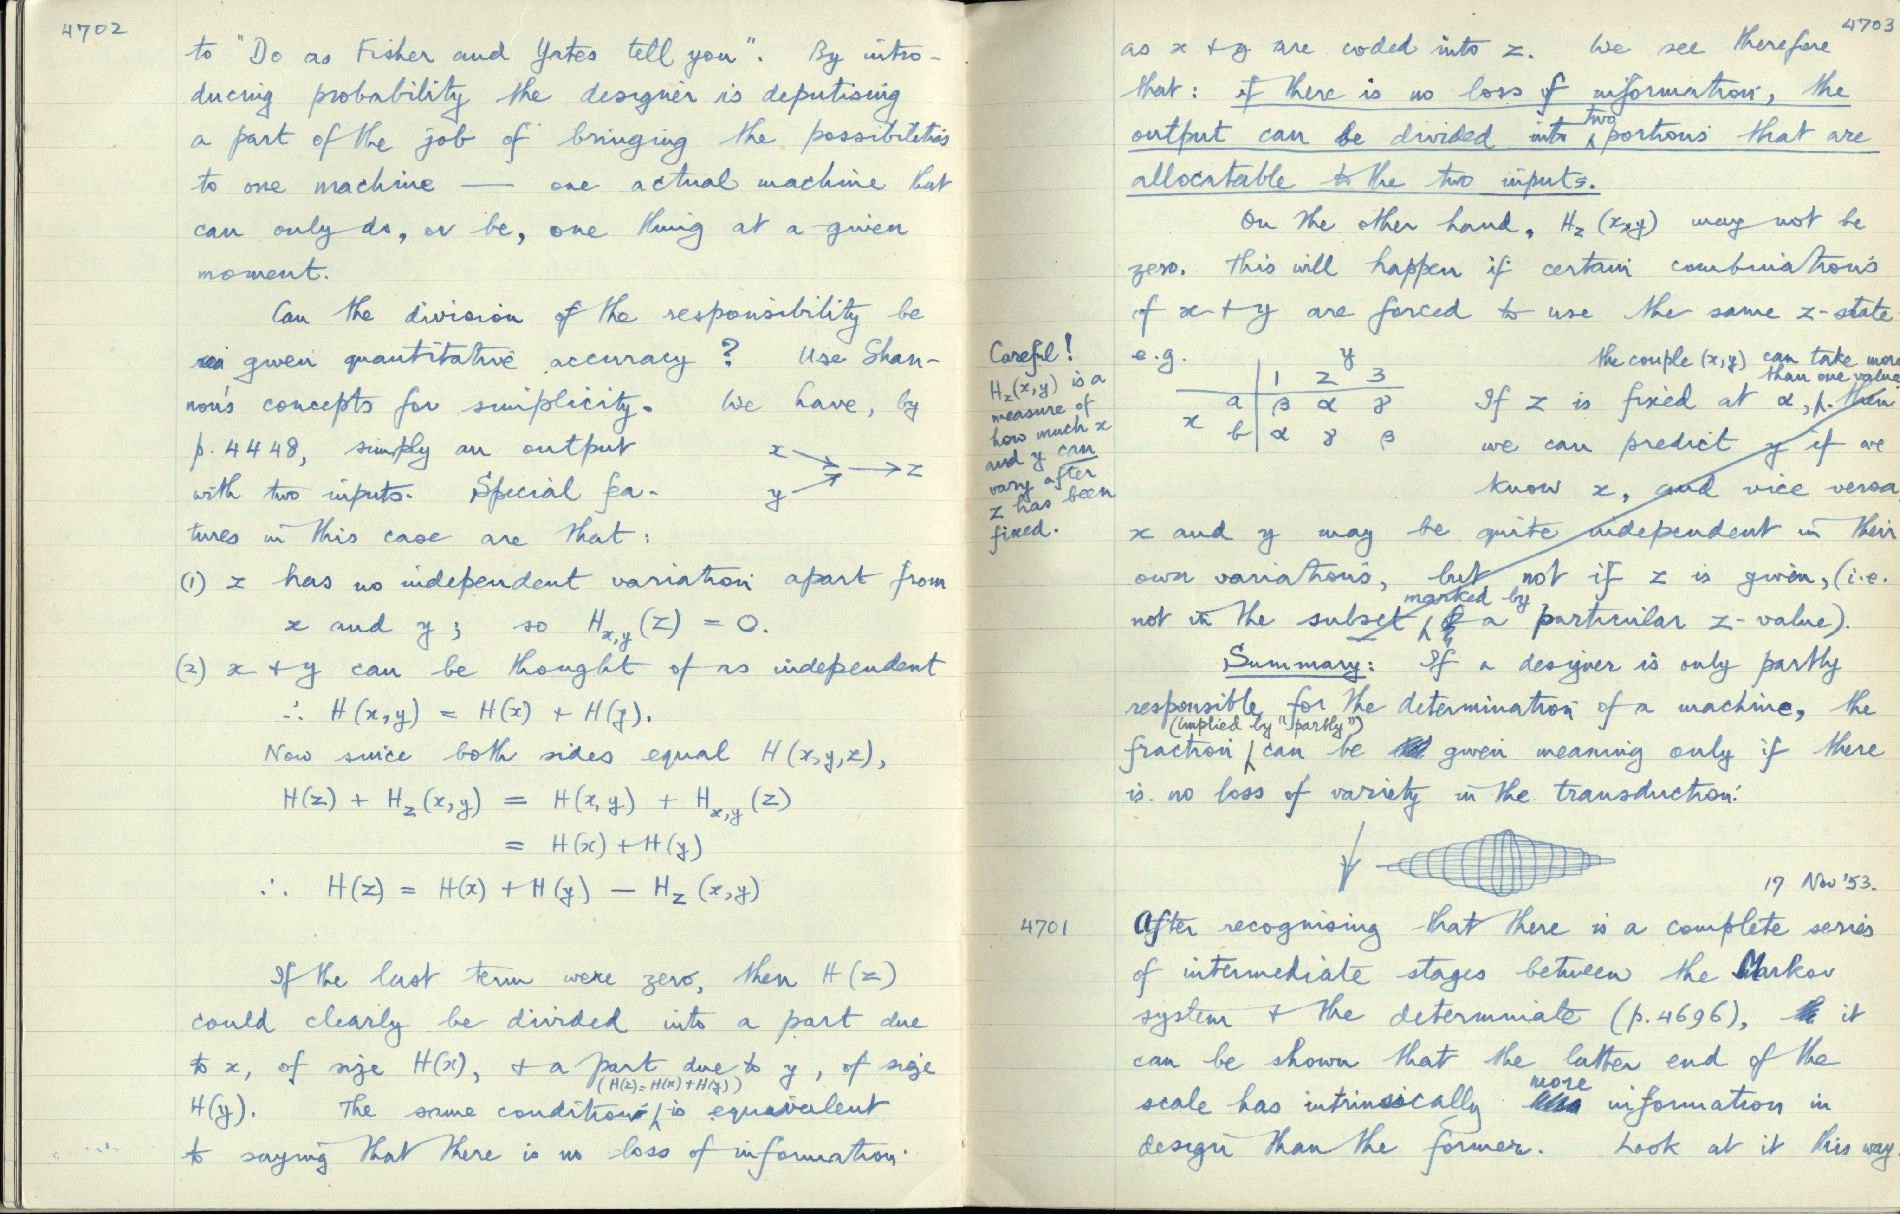 4702
to "Do as Fisher and Yates tell you". By intro-
ducing probability the designer is deputising
a part of the job of bringing the possibilities
to one machine — one actual machine that
can only do, or be, one thing at a given
moment.
Can the division of the responsibility be
given quantitative accuracy? Use Shan-
non's concepts for simplicity. We have, by
p. 4448, simply an output
with two inputs. Special fea-
tures in this case are that:
x
y
→ z
(1) z has no independent variation apart from
x and y; so Hx,y(z) = 0.
(2) x + y can be thought of as independent
∴ H(x,y) = H(x) + H(y).
Now since both sides equal H(x,y,z),
H(z) + Hz(x,y) = H(x,y) + Hx,y(z)
= H(x) + H(y)
∴ H(z) = H(x) + H(y) — Hz(x,y)
If the last term were zero, then H(z)
could clearly be divided into a part due
to x, of size H(x), + a part due to y, of size
(H(z)=H(x)+H(y))
H(y). The same condition is equivalent
to saying that there is no loss of information
4703
as x + y are coded into z. We see therefore
that: if there is no loss of information, the
output can be divided into two portions that are
allocatable to the two inputs.
On the other hand, Hz(x,y) may not be
zero. This will happen if certain combinations
of x + y are forced to use the same z-state
Careful!
Hz(x,y) is a
measure of
how much x
and y can
vary after
z has been
fixed.
e.g.
y
1 2 3
x a β α γ
b α γ β
the couple (x,y) can take more
than one value
If z is fixed at α, then
we can predict y if we
know x, and vice versa
x and y may be quite independent in their
own variations, but not if z is given, (i.e.
not in the subset marked by a particular z-value).
Summary: If a designer is only partly
responsible for the determination of a machine, the
(implied by "partly")
fraction can be given meaning only if there
is no loss of variety in the transduction.
17 Nov '53.
4701
After recognising that there is a complete series
of intermediate stages between the Markov
system + the determinate (p.4696), it
can be shown that the latter end of the
scale has intrinsically more information in
design than the former. Look at it this way.